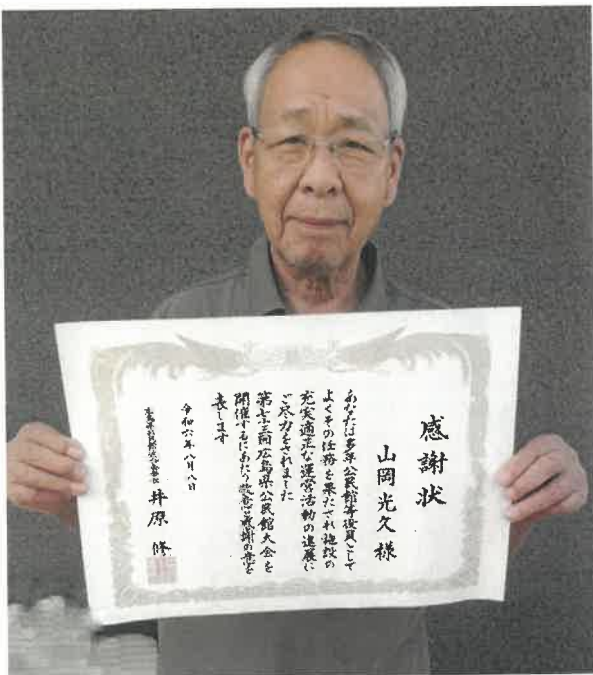 感謝状
山岡光久 様
あなたは多年公民館等役員として
よくその任務を果たされ施設の
充実適正な運営活動の進展に
ご尽力をされました
第七三回広島県公民館大会を
開催するにあたり敬意と感謝の意を
表します
令和六年八月八日
井原 修